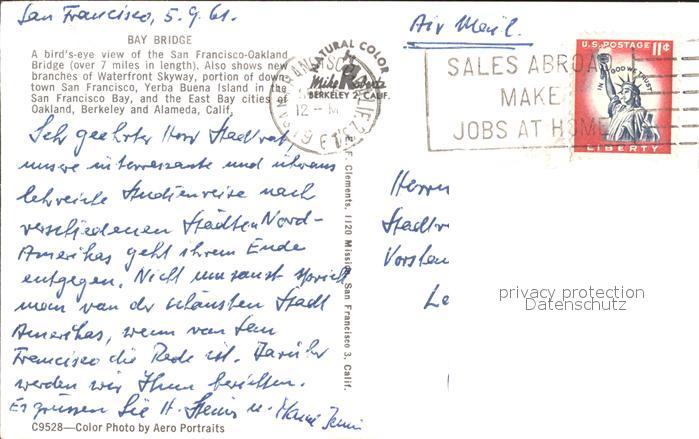 San Francisco, 5.9.61.
BAY BRIDGE
A bird's-eye view of the San Francisco-Oakland
Bridge (over 7 miles in length). Also shows new
branches of Waterfront Skyway, portion of down-
town San Francisco, Yerba Buena Island in the
San Francisco Bay, and the East Bay cities of
Oakland, Berkeley and Alameda, Calif.
Sehr geehrter Herr Stadtrat,
unsere interessante und überaus
lehrreiche Studienreise nach
verschiedenen Städten Nord-
Amerikas geht ihrem Ende
entgegen. Nicht umsonst spricht
man von der schönsten Stadt
Amerikas, wenn von San
Francisco die Rede ist. Darüber
werden wir Ihnen berichten.
Es grüssen Sie H. u.
C9528—Color Photo by Aero Portraits
NATURAL COLOR
Mike Roberts
BERKELEY 2, CALIF.
12-M
F. Clements, 1120 Mission, San Francisco 3, Calif.
Air Mail.
SALES ABROAD
MAKE
JOBS AT HOME
U.S. POSTAGE 11¢
IN GOD WE TRUST
LIBERTY
Herrn
Stadtr
Vorstan
Le
privacy protection
Datenschutz